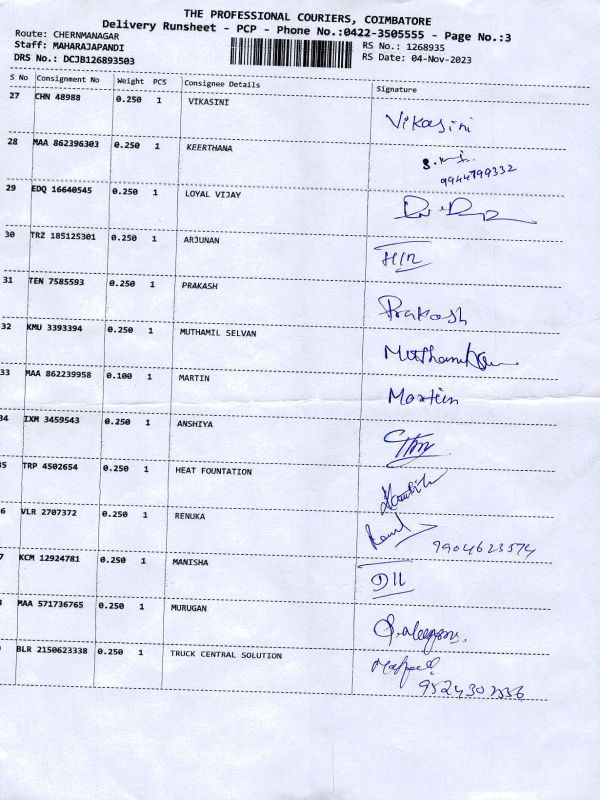 THE PROFESSIONAL COURIERS, COIMBATORE
Delivery Runsheet - PCP - Phone No.:0422-3505555 - Page No.:3
Route: CHERNMANAGAR
Staff: MAHARAJAPANDI
DRS No.: DCJB126893503
RS No.: 1268935
RS Date: 04-Nov-2023
S No Consignment No Weight PCS Consignee Details Signature
27 CHN 48988 0.250 1 VIKASINI Vikasini
28 MAA 862396303 0.250 1 KEERTHANA
9944799332
29 EDQ 16640545 0.250 1 LOYAL VIJAY
30 TRZ 185125301 0.250 1 ARJUNAN
31 TEN 7585593 0.250 1 PRAKASH Prakash
32 KMU 3393394 0.250 1 MUTHAMIL SELVAN
33 MAA 862239958 0.100 1 MARTIN Martin
34 IXM 3459543 0.250 1 ANSHIYA
35 TRP 4502654 0.250 1 HEAT FOUNTATION
6 VLR 2707372 0.250 1 RENUKA
9904623574
7 KCM 12924781 0.250 1 MANISHA
MAA 571736765 0.250 1 MURUGAN
BLR 2150623338 0.250 1 TRUCK CENTRAL SOLUTION